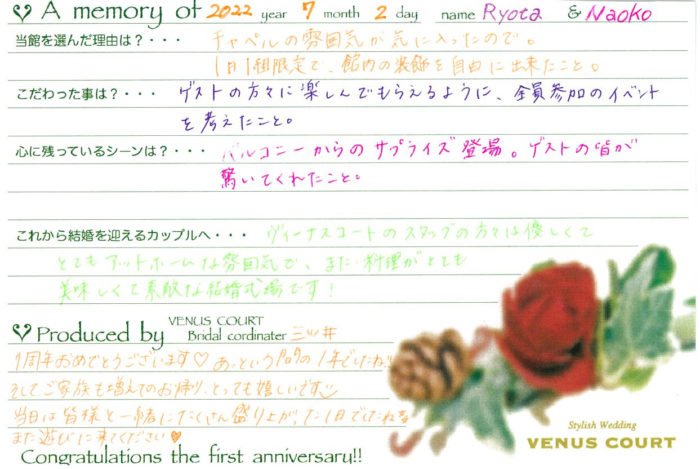 A memory of 2022 year 7 month 2 day name Ryota & Naoko
当館を選んだ理由は?・・・ チャペルの雰囲気が気に入ったので。
1日1組限定で、館内の装飾を自由に出来たこと。
こだわった事は?・・・ ゲストの方々に楽しんでもらえるように、全員参加のイベント
を考えたこと。
心に残っているシーンは?・・・ バルコニーからのサプライズ登場。ゲストの皆が
驚いてくれたこと。
これから結婚を迎えるカップルへ・・・ ヴィーナスコートのスタッフの方々は優しくて
とてもアットホームな雰囲気で、また料理がとても
美味しくて素敵な結婚式場です!
Produced by VENUS COURT Bridal cordinater 三ツ井
1周年おめでとうございます♡ あっという間の1年でしたね
そしてご家族も増えてのお帰り、とっても嬉しいです
当日は皆様と一緒にたくさん盛り上がった1日でしたね
また遊びに来てください♥
Congratulations the first anniversary!!
Stylish Wedding
VENUS COURT